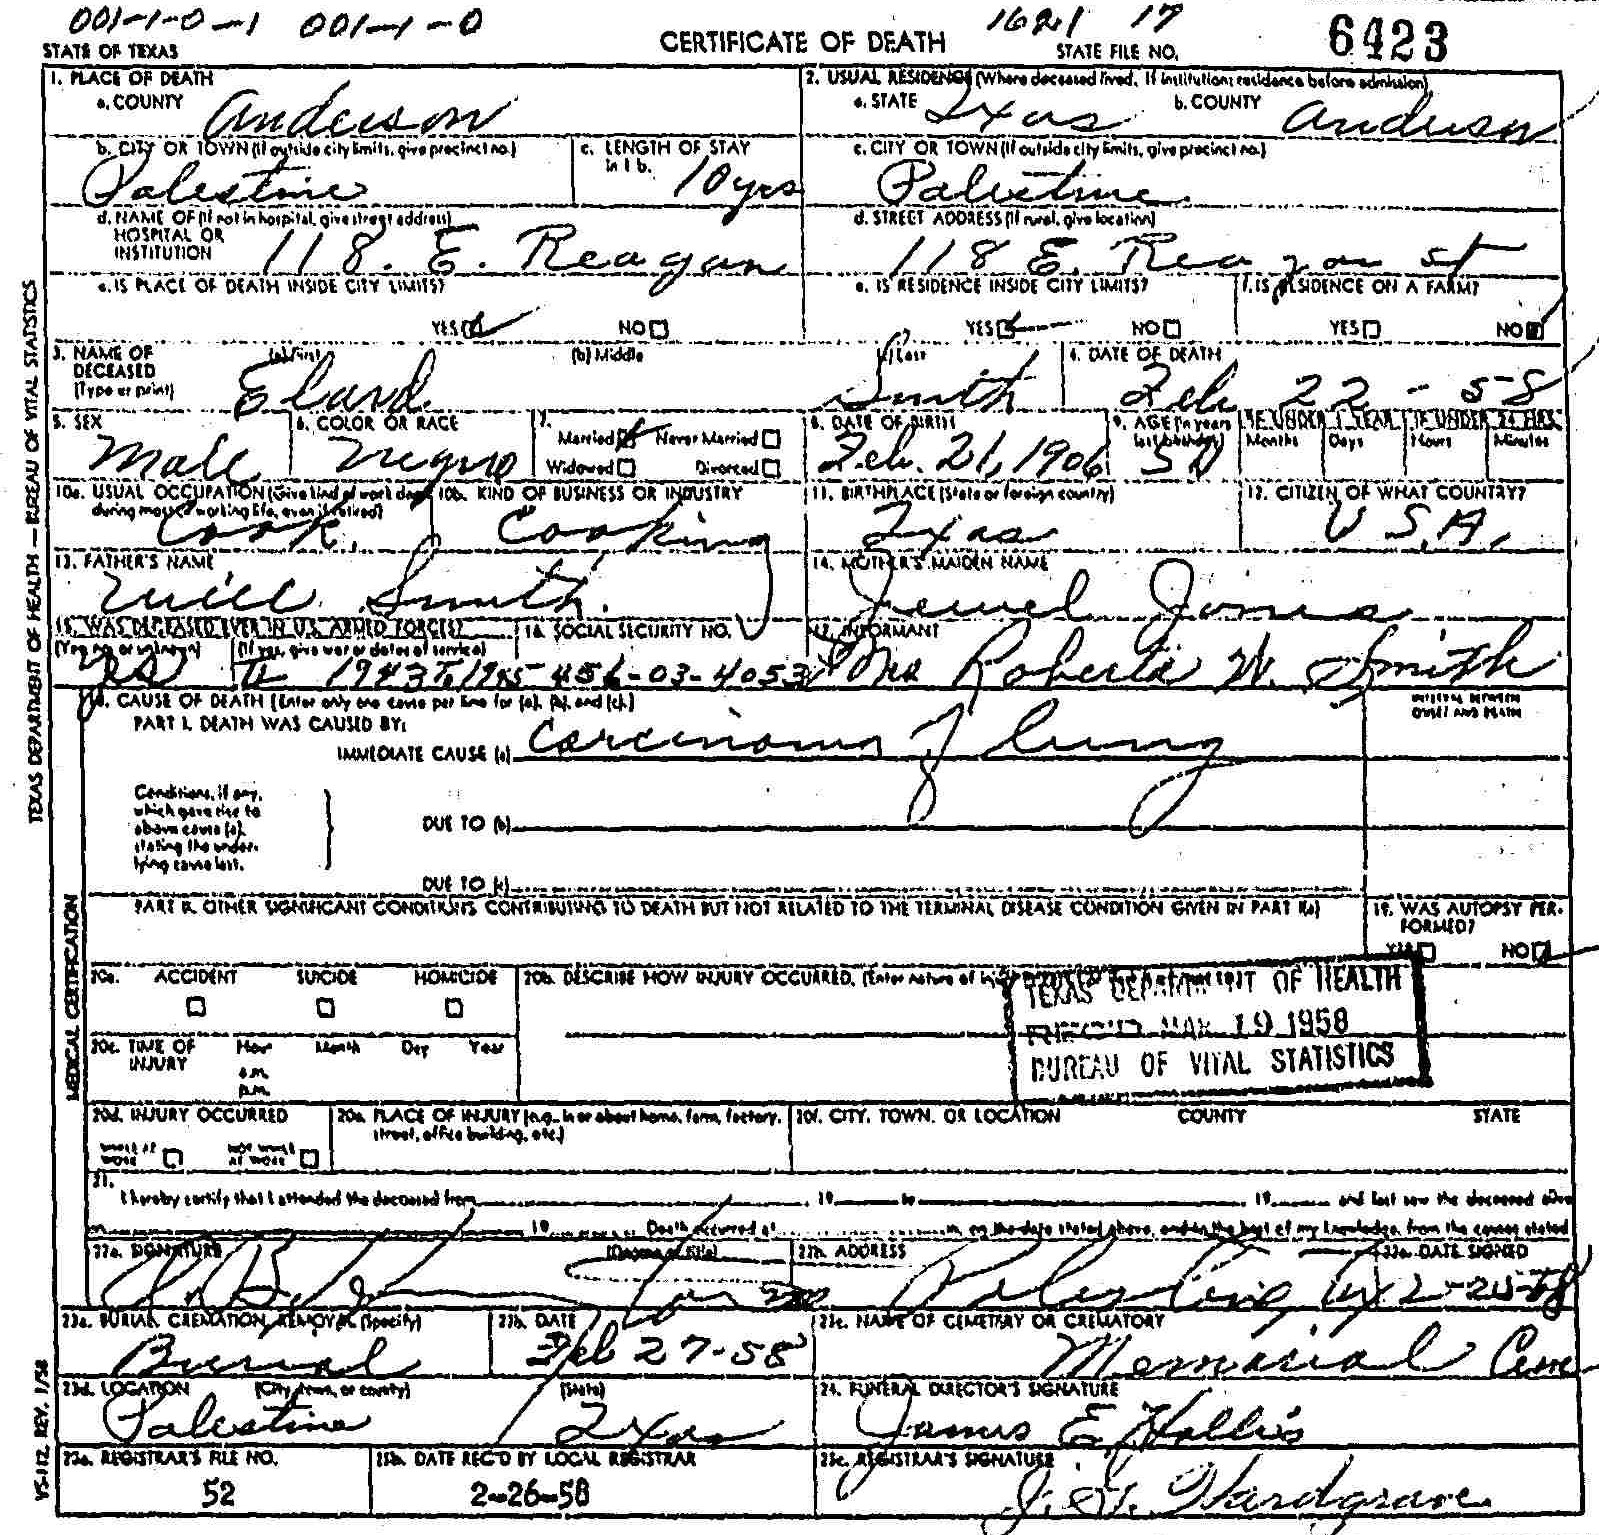 001-1-0-1 001-1-0 1621 17
STATE OF TEXAS CERTIFICATE OF DEATH STATE FILE NO. 6423
TEXAS DEPARTMENT OF HEALTH — BUREAU OF VITAL STATISTICS
1. PLACE OF DEATH 2. USUAL RESIDENCE (Where deceased lived. If institution: residence before admission)
a. COUNTY Anderson a. STATE Texas b. COUNTY Anderson
b. CITY OR TOWN (If outside city limits, give precinct no.) c. LENGTH OF STAY in 1 b. c. CITY OR TOWN (If outside city limits, give precinct no.)
Palestine 10 yrs Palestine
d. NAME OF (If not in hospital, give street address) HOSPITAL OR INSTITUTION 118. E. Reagan d. STREET ADDRESS (If rural, give location) 118 E. Reagan st
e. IS PLACE OF DEATH INSIDE CITY LIMITS? e. IS RESIDENCE INSIDE CITY LIMITS? f. IS RESIDENCE ON A FARM?
YES NO YES NO YES NO
3. NAME OF DECEASED (Type or print) (a) First (b) Middle (c) Last 4. DATE OF DEATH
Elard Smith Feb 22 - 58
5. SEX 6. COLOR OR RACE 7. Married Never Married Widowed Divorced 8. DATE OF BIRTH 9. AGE (In years last birthday) IF UNDER 1 YEAR IF UNDER 24 HRS.
Months Days Hours Minutes
Male Negro Feb. 21, 1906
10a. USUAL OCCUPATION (Give kind of work done during most of working life, even if retired) 10b. KIND OF BUSINESS OR INDUSTRY 11. BIRTHPLACE (State or foreign country) 12. CITIZEN OF WHAT COUNTRY?
Cook. Cooking Texas U.S.A.
13. FATHER'S NAME 14. MOTHER'S MAIDEN NAME
Will Smith. Jewel Jones
15. WAS DECEASED EVER IN U.S. ARMED FORCES? 16. SOCIAL SECURITY NO. 17. INFORMANT
(Yes, no, or unknown) (If yes, give war or dates of service)
Yes II 1943 To 1945 456-03-4053 Mrs Roberta W. Smith
18. CAUSE OF DEATH (Enter only one cause per line for (a), (b), and (c).) INTERVAL BETWEEN ONSET AND DEATH
PART I. DEATH WAS CAUSED BY:
IMMEDIATE CAUSE (a) Carcinoma of lung
Conditions, if any, which gave rise to above cause (a), stating the underlying cause last.
DUE TO (b)
DUE TO (c)
MEDICAL CERTIFICATION
PART II. OTHER SIGNIFICANT CONDITIONS CONTRIBUTING TO DEATH BUT NOT RELATED TO THE TERMINAL DISEASE CONDITION GIVEN IN PART I(a) 19. WAS AUTOPSY PERFORMED?
YES NO
20a. ACCIDENT SUICIDE HOMICIDE 20b. DESCRIBE HOW INJURY OCCURRED. (Enter nature of
TEXAS DEPARTMENT OF HEALTH
REC'D MAR 19 1958
BUREAU OF VITAL STATISTICS
20c. TIME OF INJURY Hour Month Day Year
a.m.
p.m.
20d. INJURY OCCURRED 20e. PLACE OF INJURY (e.g., in or about home, farm, factory, street, office building, etc.) 20f. CITY, TOWN, OR LOCATION COUNTY STATE
WHILE AT WORK NOT WHILE AT WORK
21. I hereby certify that I attended the deceased from 19 to 19 and last saw the deceased alive
on 19 Death occurred at m. on the date stated above, and to the best of my knowledge, from the causes stated
22a. SIGNATURE (Degree or title) 22b. ADDRESS 22c. DATE SIGNED
Palestine, Tx
23a. BURIAL, CREMATION, REMOVAL (Specify) 23b. DATE 23c. NAME OF CEMETERY OR CREMATORY
Burial Feb 27-58 Memorial Cem
23d. LOCATION (City, town, or county) (State) 24. FUNERAL DIRECTOR'S SIGNATURE
Palestine Texas James E. Hollis
25a. REGISTRAR'S FILE NO. 25b. DATE REC'D BY LOCAL REGISTRAR 25c. REGISTRAR'S SIGNATURE
52 2-26-58 Hardgrave
VS-112 REV. 1/58